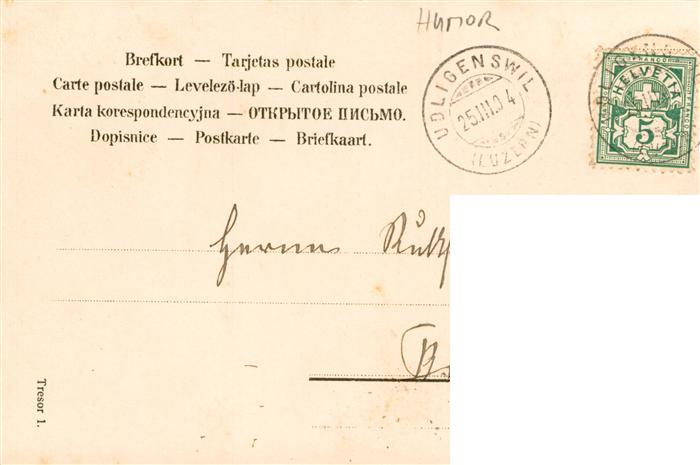 HUMOR
Brefkort — Tarjetas postale
Carte postale — Levelező-lap — Cartolina postale
Karta korespondencyjna — ОТКРЫТОЕ ПИСЬМО.
Dopisnice — Postkarte — Briefkaart.
UDLIGENSWIL
25.III.04
(LUZERN)
FRANCO
HELVETIA
5
Herrn
Tresor 1.